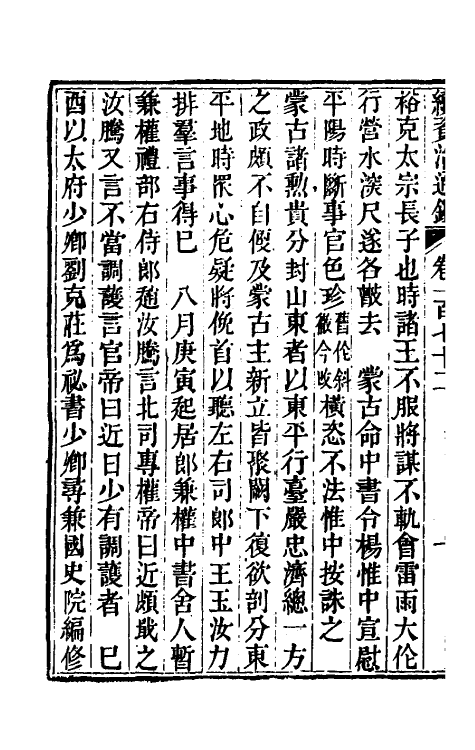 續資治通鑑 卷一百七十二
裕克太宗長子也時諸王不服將謀不軌會雷雨大作
行營水深尺遂各散去　蒙古命中書令楊惟中宣慰
平陽時斷事官色珍舊作斜徹今改橫恣不法惟中按誅之
蒙古諸勲貴分封山東者以東平行臺嚴忠濟總一方
之政頗不自便及蒙古主新立皆聚闕下復欲剖分東
平地時眾心危疑將俛首以聽左右司郎中王玉汝力
排羣言事得已　八月庚寅起居郎兼權中書舍人暫
兼權禮部右侍郎趙汝騰言北司專權帝曰近頗戢之
汝騰又言不當調護言官帝曰近日少有調護者　巳
酉以太府少卿劉克莊爲祕書少卿尋兼國史院編修